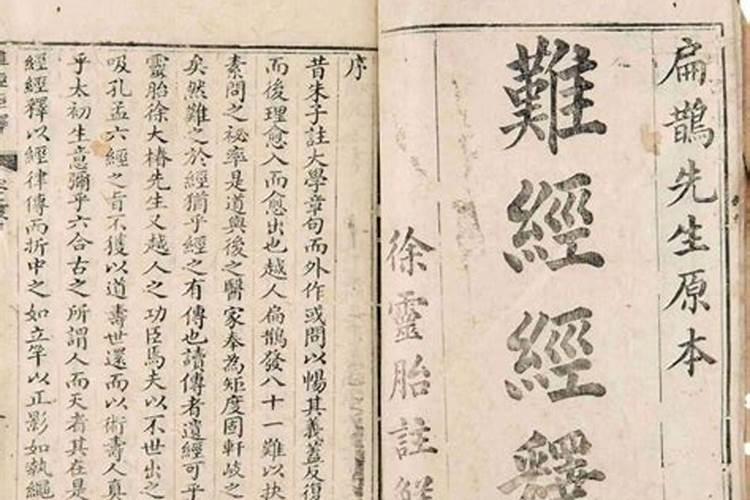 扁鵲先生原本
難經經釋
徐靈胎註解
序
昔朱子註大學章句而外作或問以暢其義蓋反復
而後理愈入而愈出也越人扁鵲發八十一難以抉
素問之秘率是道與後之醫家奉為矩度固軒岐之
矣然難之於經猶乎經之有傳也讀傳者遺經可乎
靈胎徐大椿先生又越人之功臣馬夫以不世出之
吸孔孟六經之旨不獲以道壽世還而以術壽人真
乎太初生意彌乎六合古之所謂人而天者其在是
經經釋以經律傳而折中之如立竿以正影如執繩